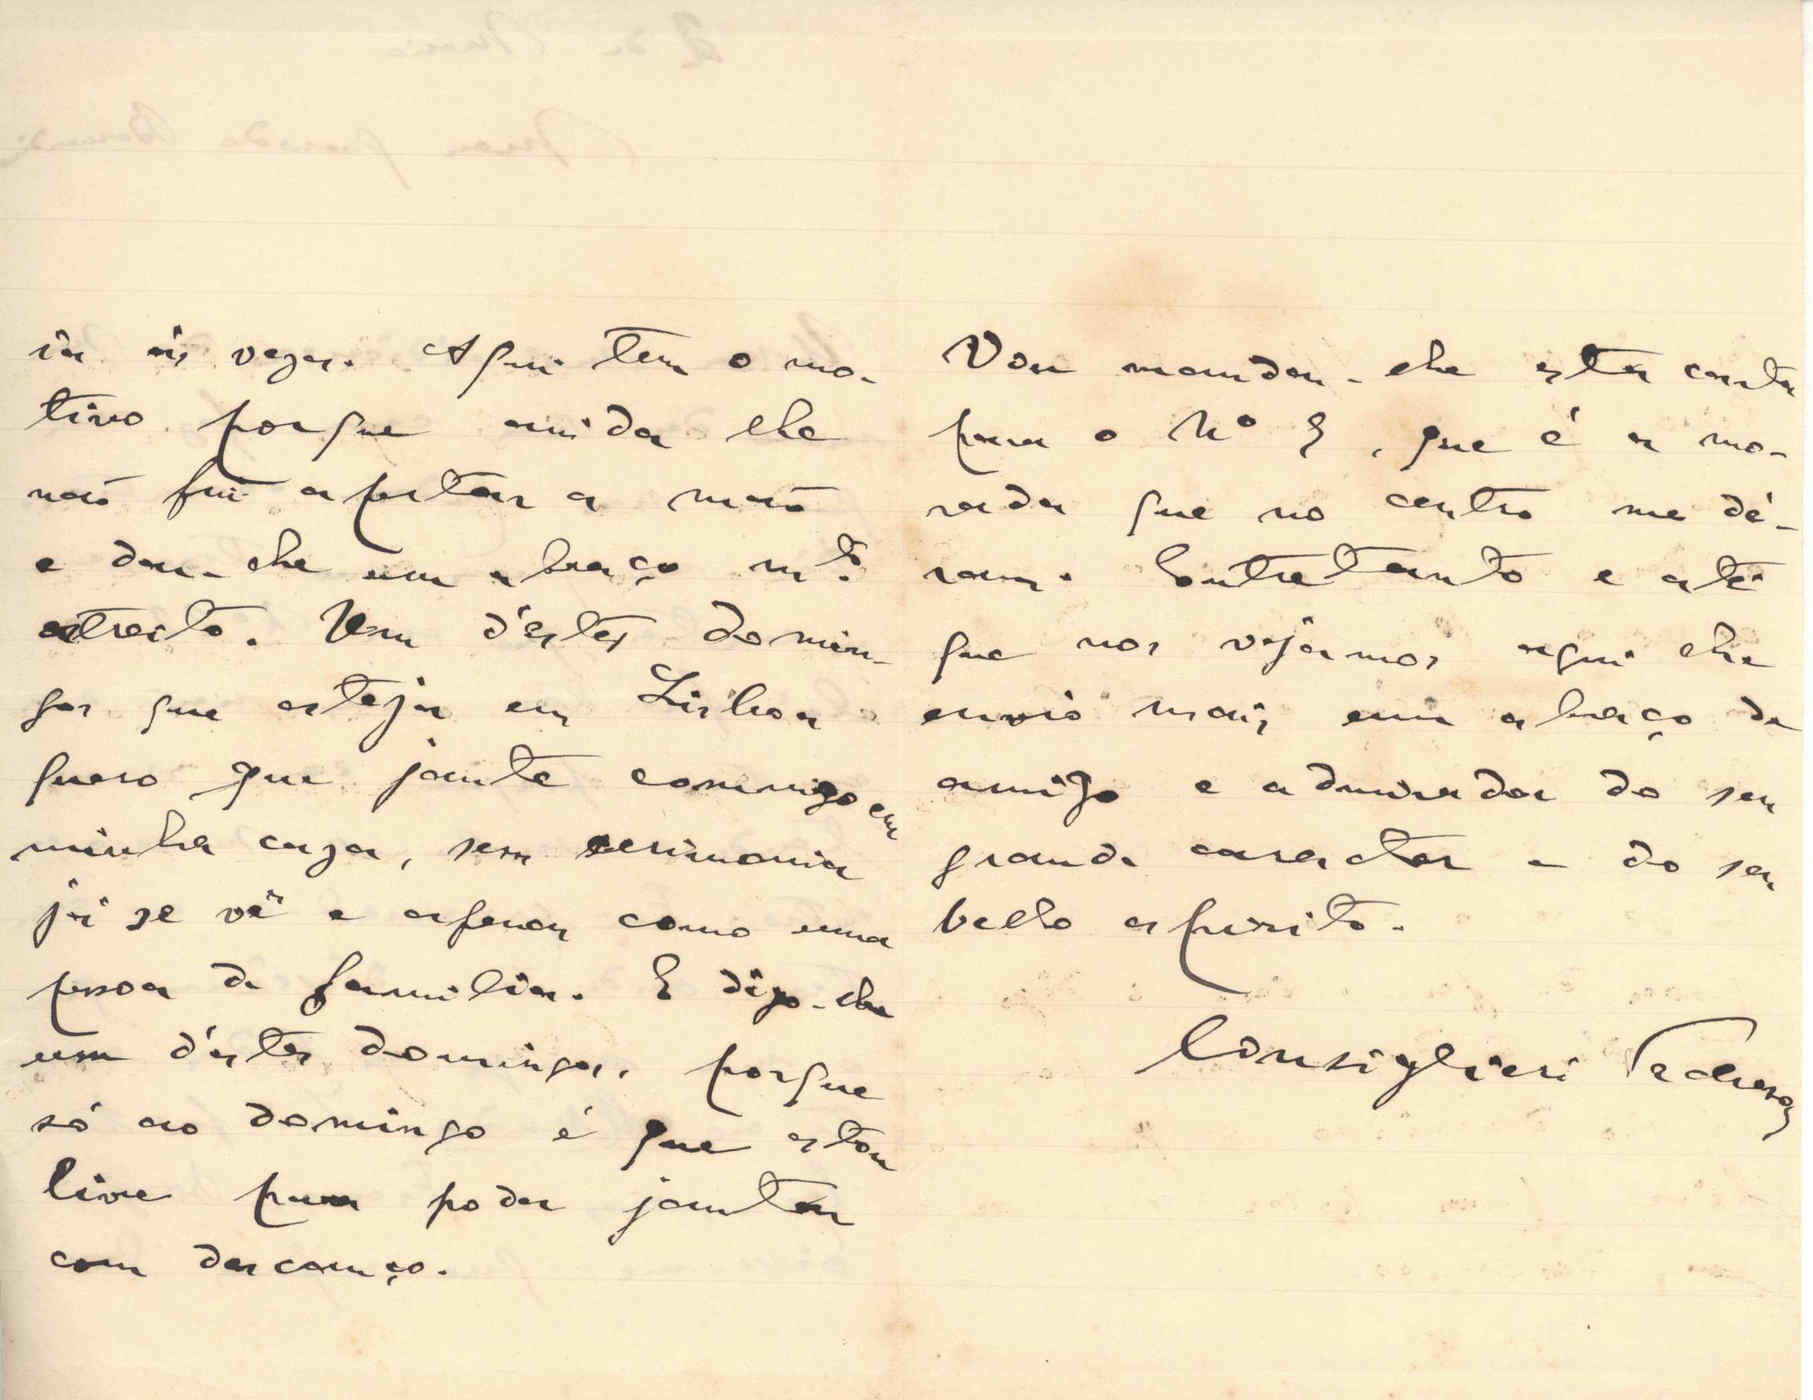 ia ás vezes. Aqui tem o mo-
tivo porque ainda lhe
não fui apertar a mão
e dar-lhe um abraço mto.
estreito. Um d'estes domin-
gos que esteja em Lisboa
quero que jante commigo em
minha caza, sem cerimonia
já se vê e apenas como uma
pessoa de familia. E digo-lhe
um d'estes domingos, porque
só ao domingo é que estou
livre para poder jantar
com descanço.
Vou mandar-lhe esta carta
para o Nº, que é a mo-
rada que no centro me dé-
ram. Entretanto e até
que nos vejamos aqui lhe
envio mais um abraço de
amigo e admirador do seu
grande caracter e do seu
bello espirito.
Consiglieri Pedroso